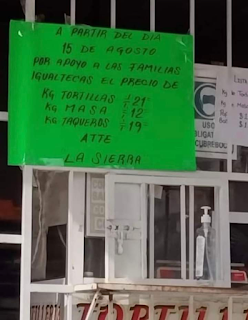 A PARTIR DEL DIA
15 DE AGOSTO
POR APOYO A LAS FAMILIAS
IGUALTECAS EL PRECIO DE
KG TORTILLAS $21
KG MASA $12
KG TAQUEROS $19
ATTE
LA SIERRA
USO
CUBREBOC
TORTILL